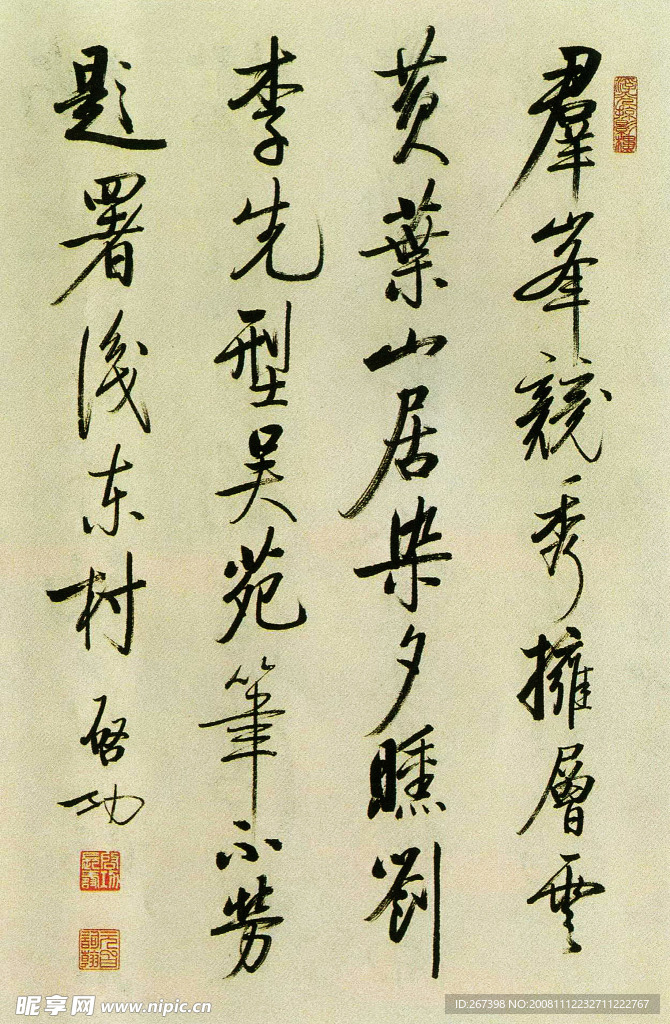 羣峯競秀擁層雲
黄葉山居染夕曛劉
李先型吴苑筆不勞
题署識东村
啓功
昵享网 www.nipic.cn
ID:267398 NO:20081112232711222767